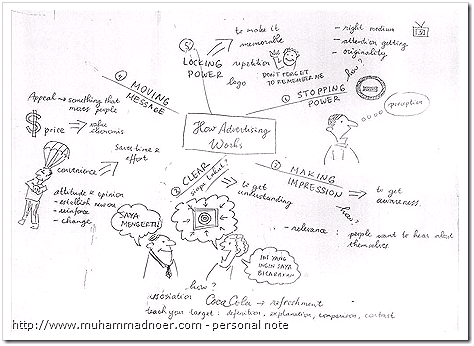 How Advertising
Works
① STOPPING
POWER
- right medium
- attention getting
- originality
how
perception
② MAKING
IMPRESSION
to get
awareness.
how?
- relevance : people want to hear about
themselves.
③ CLEAR
siapa
to get
understanding
SAYA
MENGERTI!
INI YANG
INGIN SAYA
BICARAKAN
how?
association CocaCola → refreshment
teach your target : definition, explanation, comparison, contrast
④ MOVING
MESSAGE
Appeal → something that
moves people
$ price → value
ekonomis
convenience
Saves time &
effort
attitude & opinion
- establish new one
- reinforce
- change
⑤ LOCKING
POWER
to make it
memorable
repetition
logo
DON'T FORGET
TO REMEMBER ME
http://www.muhammadnoer.com - personal note